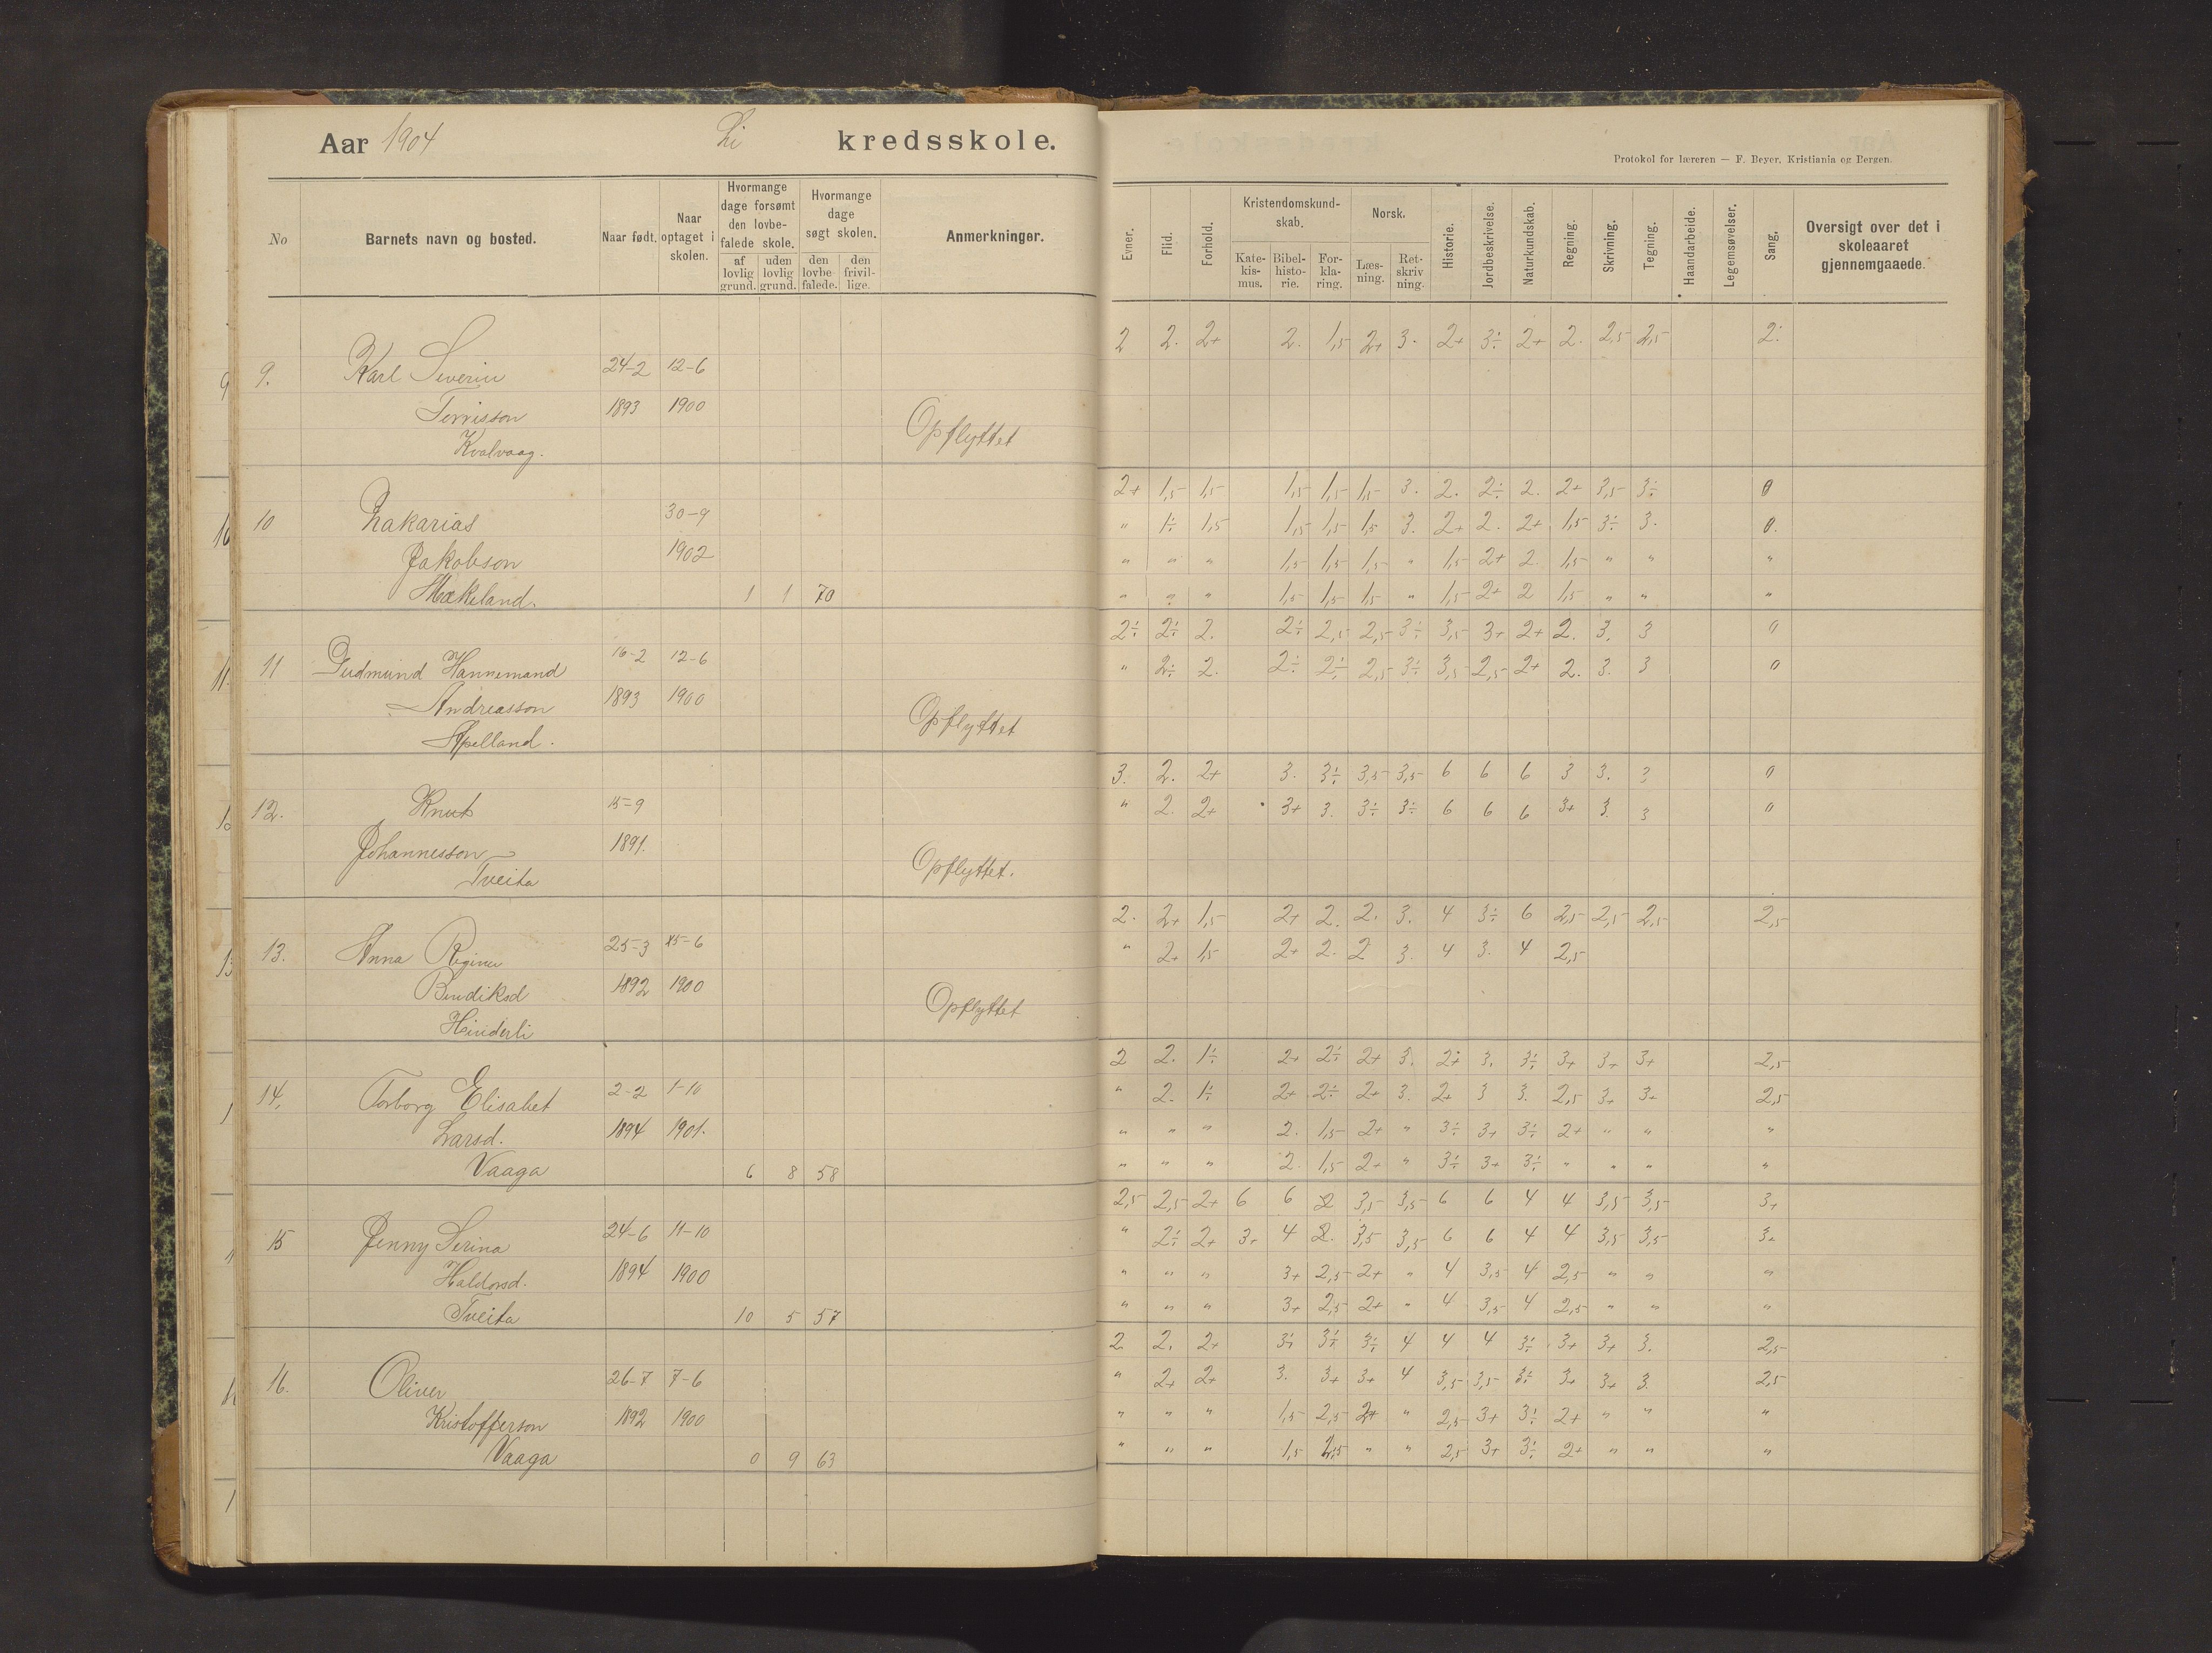 Aar 1904 Li kredsskole.
Protokol for læreren — F. Beyer, Kristiania og Bergen.
No
Barnets navn og bosted.
Naar født.
Naar optaget i skolen.
Hvormange dage forsømt den lovbefalede skole.
af lovlig grund.
uden lovlig grund.
Hvormange dage søgt skolen.
den lovbefalede.
den frivillige.
Anmerkninger.
Evner.
Flid.
Forhold.
Kristendomskundskab.
Katekismus.
Bibelhistorie.
Forklaring.
Norsk.
Læsning.
Retskrivning.
Historie.
Jordbeskrivelse.
Naturkundskab.
Regning.
Skrivning.
Tegning.
Haandarbeide.
Legemsøvelser.
Sang.
Oversigt over det i skoleaaret gjennemgaaede.
2 2. 2+ 2. 1,5 2+ 3. 2+ 3÷ 2+ 2. 2,5 2,5 2.
9. Karl Severin 24-2 12-6
Tørrisson 1893 1900
Kvalvaag. Opflyttet
2+ 1,5 1,5 1,5 1,5 1,5 3. 2. 2÷ 2. 2+ 3,5 3÷ 0
10 Zakarias 30-9 " 1÷ 1,5 1,5 1,5 1,5 3. 2+ 2. 2+ 1,5 3÷ 3. 0.
Jakobson 1902 " " " 1,5 1,5 1,5 " 1,5 2+ 2 1,5 " " "
Mækeland. 1 1 70 " " " 1,5 1,5 1,5 " 1,5 2+ 2 1,5 " " "
2÷ 2÷ 2. 2÷ 2,5 2,5 3÷ 3,5 3+ 2+ 2. 3. 3 0
11 Gudmund Hannemand 16-2 12-6 " 2÷ 2. 2÷ 2÷ 2,5 3÷ 3,5 2,5 2+ 2. 3. 3 0
Andreasson 1893 1900
Apelland. Opflyttet
3. 2. 2+ 3. 3÷ 3,5 3,5 6 6 6 3 3. 3 0
12. Knut 15-9 " 2. 2+ 3+ 3. 3÷ 3÷ 6 6 6 3+ 3. 3 0
Johannesson 1891.
Tveita Opflyttet.
2. 2+ 1,5 2+ 2. 2. 3. 4 3÷ 6 2,5 2,5 2,5 2,5
13. Anna Regine 25-3 15-6 " 2+ 1,5 2+ 2. 2 3. 4 3. 4 2,5
Bendiksd 1892 1900
Hinderli Opflyttet
2 2. 1÷ 2+ 2÷ 2+ 3. 2+ 3. 3÷ 3+ 3+ 3+ 2,5
14. Torborg Elisabet 2-2 1-10 " 2. 1÷ 2+ 2÷ 2+ 3. 2+ 3 3. 2,5 3+ 3+ 2,5
Larsd. 1894 1901. " " " 2. 1,5 2+ " 3÷ 3+ 3÷ 2+ " " "
Vaaga 6 8 58 " " " 2. 1,5 2+ " 3÷ 3+ 3÷ " " " "
2,5 2,5 2+ 6 6 2 3,5 3,5 6 6 4 4 3,5 3,5 3+
15 Jenny Serina 24-6 11-10 " 2÷ 2+ 3+ 4 2. 3,5 3,5 6 6 4 4 3,5 3,5 3+
Haldorsd. 1894 1900 " " " 3+ 2,5 2+ " 4 3,5 4 2,5 " " "
Tveita 10 5 57 " " " 3+ 2,5 2+ " 4 3,5 4 2,5 " " "
2. 2. 2+ 3÷ 3÷ 3÷ 4 4 4 3÷ 3+ 3+ 3. 2,5
16. Oliver 26-7 7-6 " 2+ 2+ 3. 3+ 3+ 4 3,5 3,5 3÷ 3+ 3+ 3. 2,5
Kristofferson 1892 1900 " " " 1,5 2,5 2+ " 2,5 3+ 3÷ 2+ " " "
Vaaga 0 9 63 " " " 1,5 2,5 " " 2,5 3+ 3÷ 2+ " " "